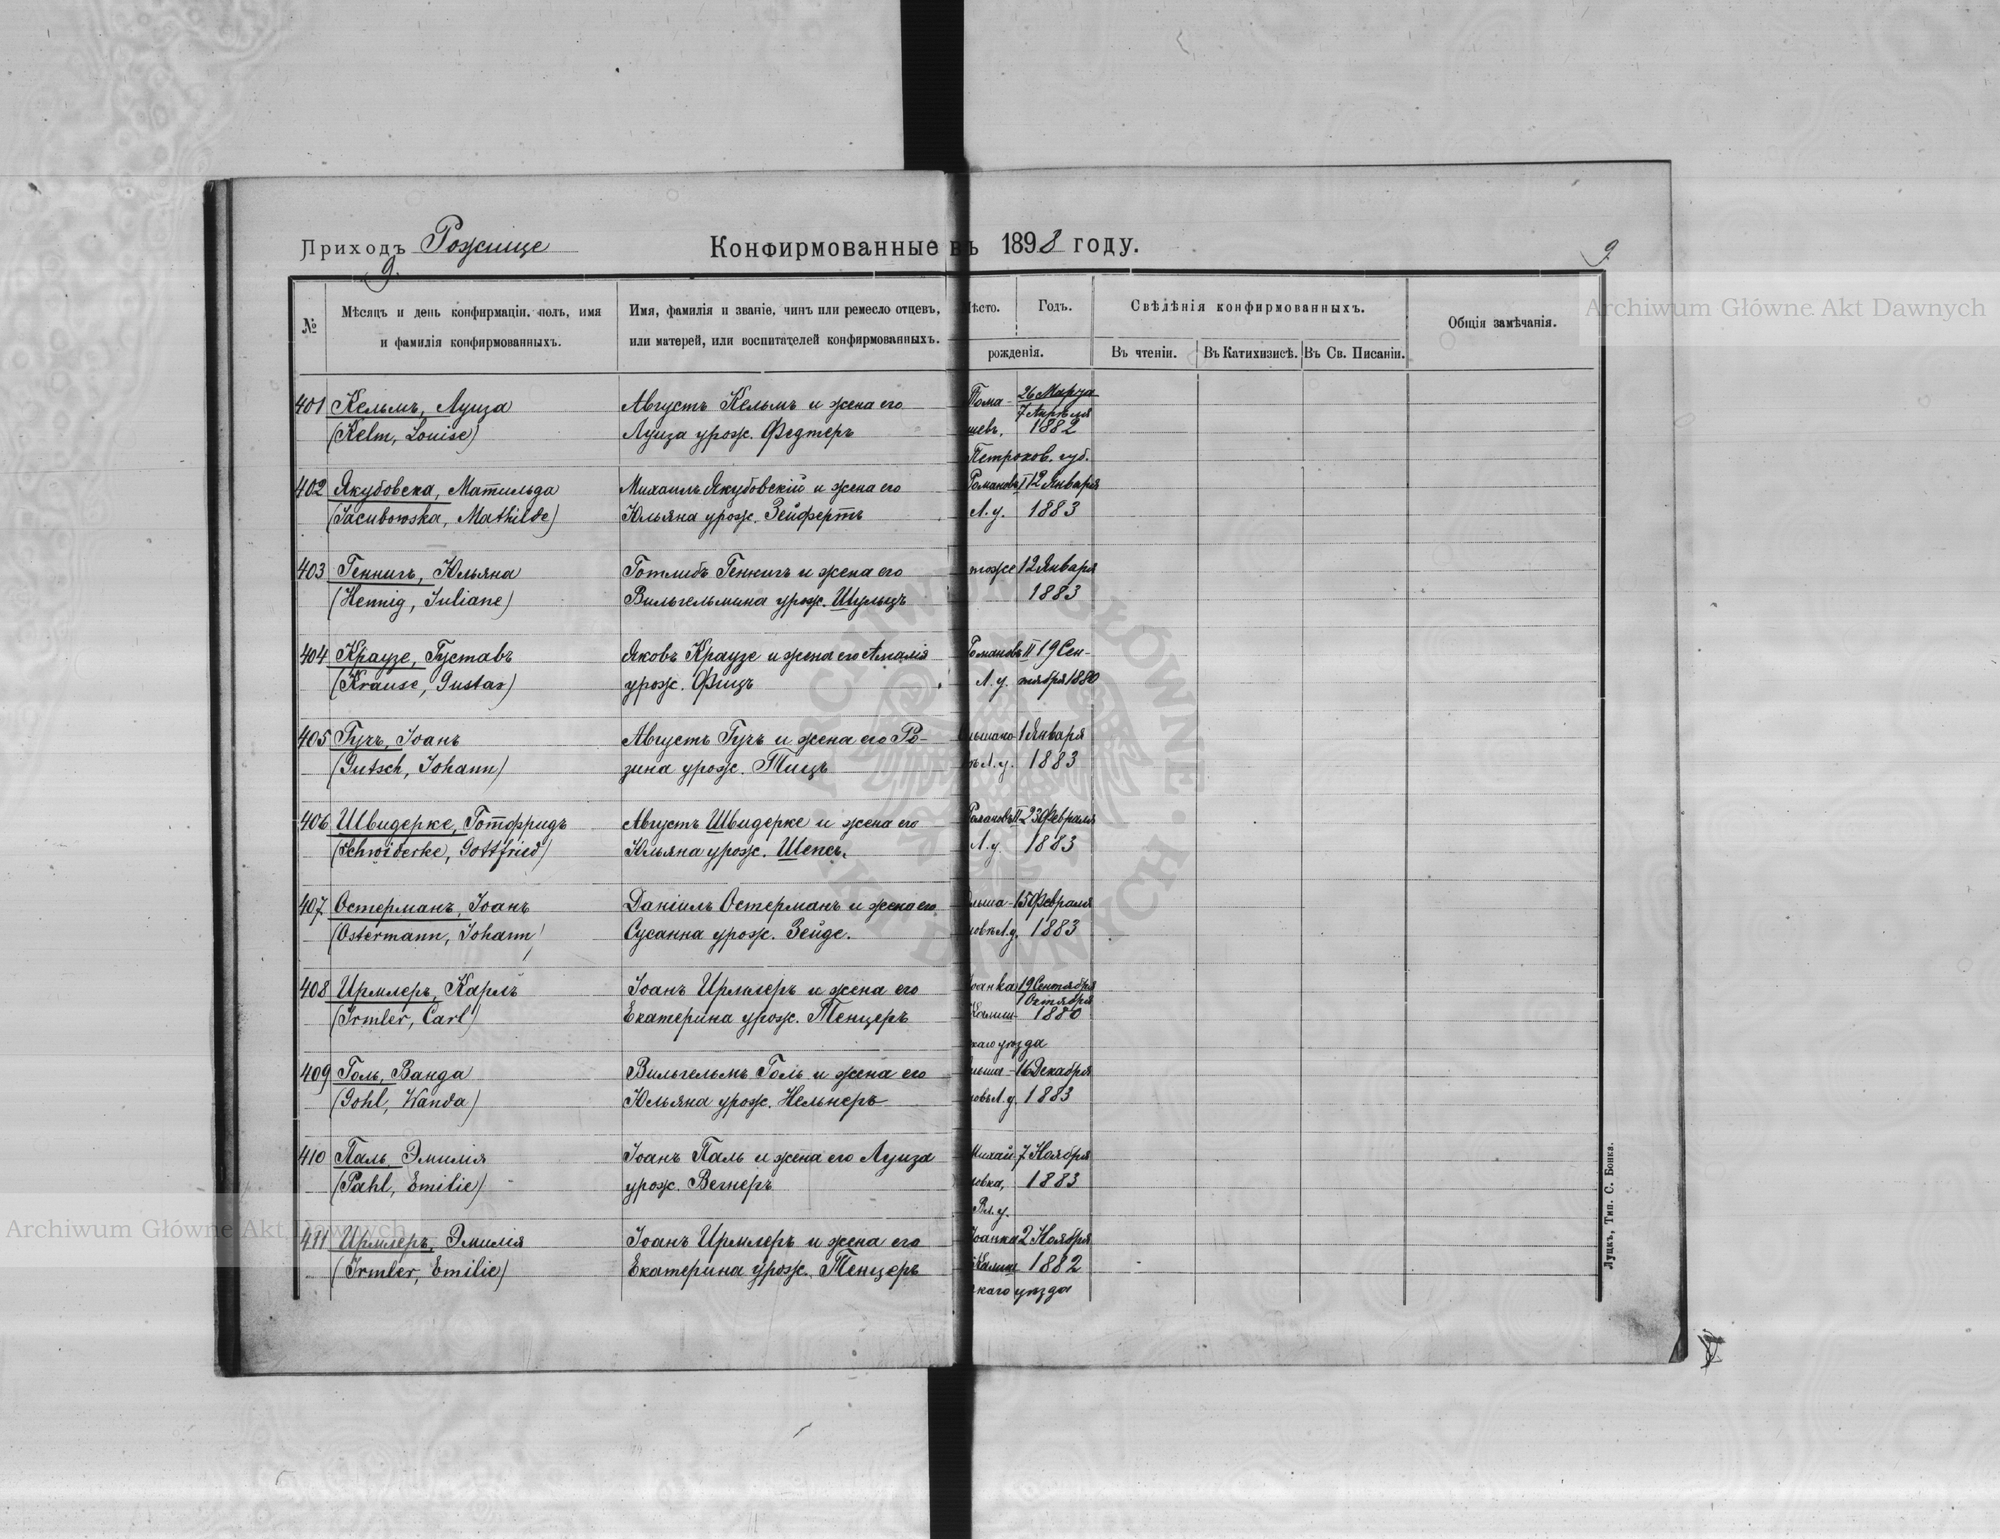 Приходъ Рожище
Конфирмованные въ 1898 году.
9.
9.
№
Мѣсяцъ и день конфирмаціи, полъ, имя
и фамилія конфирмованныхъ.
Имя, фамилія и званіе, чинъ или ремесло отцевъ,
или матерей, или воспитателей конфирмованныхъ.
Мѣсто.
Годъ.
рожденія.
Свѣдѣнія конфирмованныхъ.
Въ чтеніи.
Въ Катихизисѣ.
Въ Св. Писаніи.
Общія замѣчанія.
401 Кельмъ, Луиза Августъ Кельмъ и жена его Тома- 26 Марта
7 Апрѣля
(Kelm, Louise) Луиза урож. Федтеръ шевъ, 1882
Петроков. губ.
402 Якубовска, Матильда Михаилъ Якубовскій и жена его Романовъ I 12 Января
(Jacubowska, Mathilde) Юльяна урож. Зейфертъ Л. у. 1883
403 Геннигъ, Юльяна Готлибъ Геннигъ и жена его тоже 12 Января
(Hennig, Juliane) Вильгельмина урож. Шульцъ 1883
404 Краузе, Густавъ Яковъ Краузе и жена его Амалія Романовъ II 19 Сен-
(Krause, Gustav) урож. Фицъ Л. у. тября 1880
405 Гучъ, Іоанъ Августъ Гучъ и жена его Ро- 1 Января
(Gutsch, Johann) зина урож. Тицъ Л. у. 1883
406 Швидерке, Готфридъ Августъ Швидерке и жена его Романовъ II 23 Февраля
(Schwiderke, Gottfried) Юльяна урож. Шепсъ. Л. у. 1883
407 Остерманъ, Іоанъ Даніилъ Остерманъ и жена его 15 Февраля
(Ostermann, Johann) Сусанна урож. Зейде. Л. у. 1883
408 Ирмлеръ, Карлъ Іоанъ Ирмлеръ и жена его Іоанка 19 Сентября
1 Октября
(Irmler, Carl) Екатерина урож. Тенцеръ Калиш- 1880
каго уѣзда
409 Голь, Ванда Вильгельмъ Голь и жена его 16 Декабря
(Gohl, Wanda) Юльяна урож. Нельнеръ Л. у. 1883
410 Паль, Эмилія Іоанъ Паль и жена его Луиза Михай- 7 Ноября
(Pahl, Emilie) урож. Вегнеръ 1883
Вл. у.
411 Ирмлеръ, Эмилія Іоанъ Ирмлеръ и жена его Іоанка 2 Ноября
(Irmler, Emilie) Екатерина урож. Тенцеръ Калиш 1882
каго уѣзда
Луцкъ, Тип. С. Бонка.
Archiwum Główne Akt Dawnych
Archiwum Główne Akt Dawnych